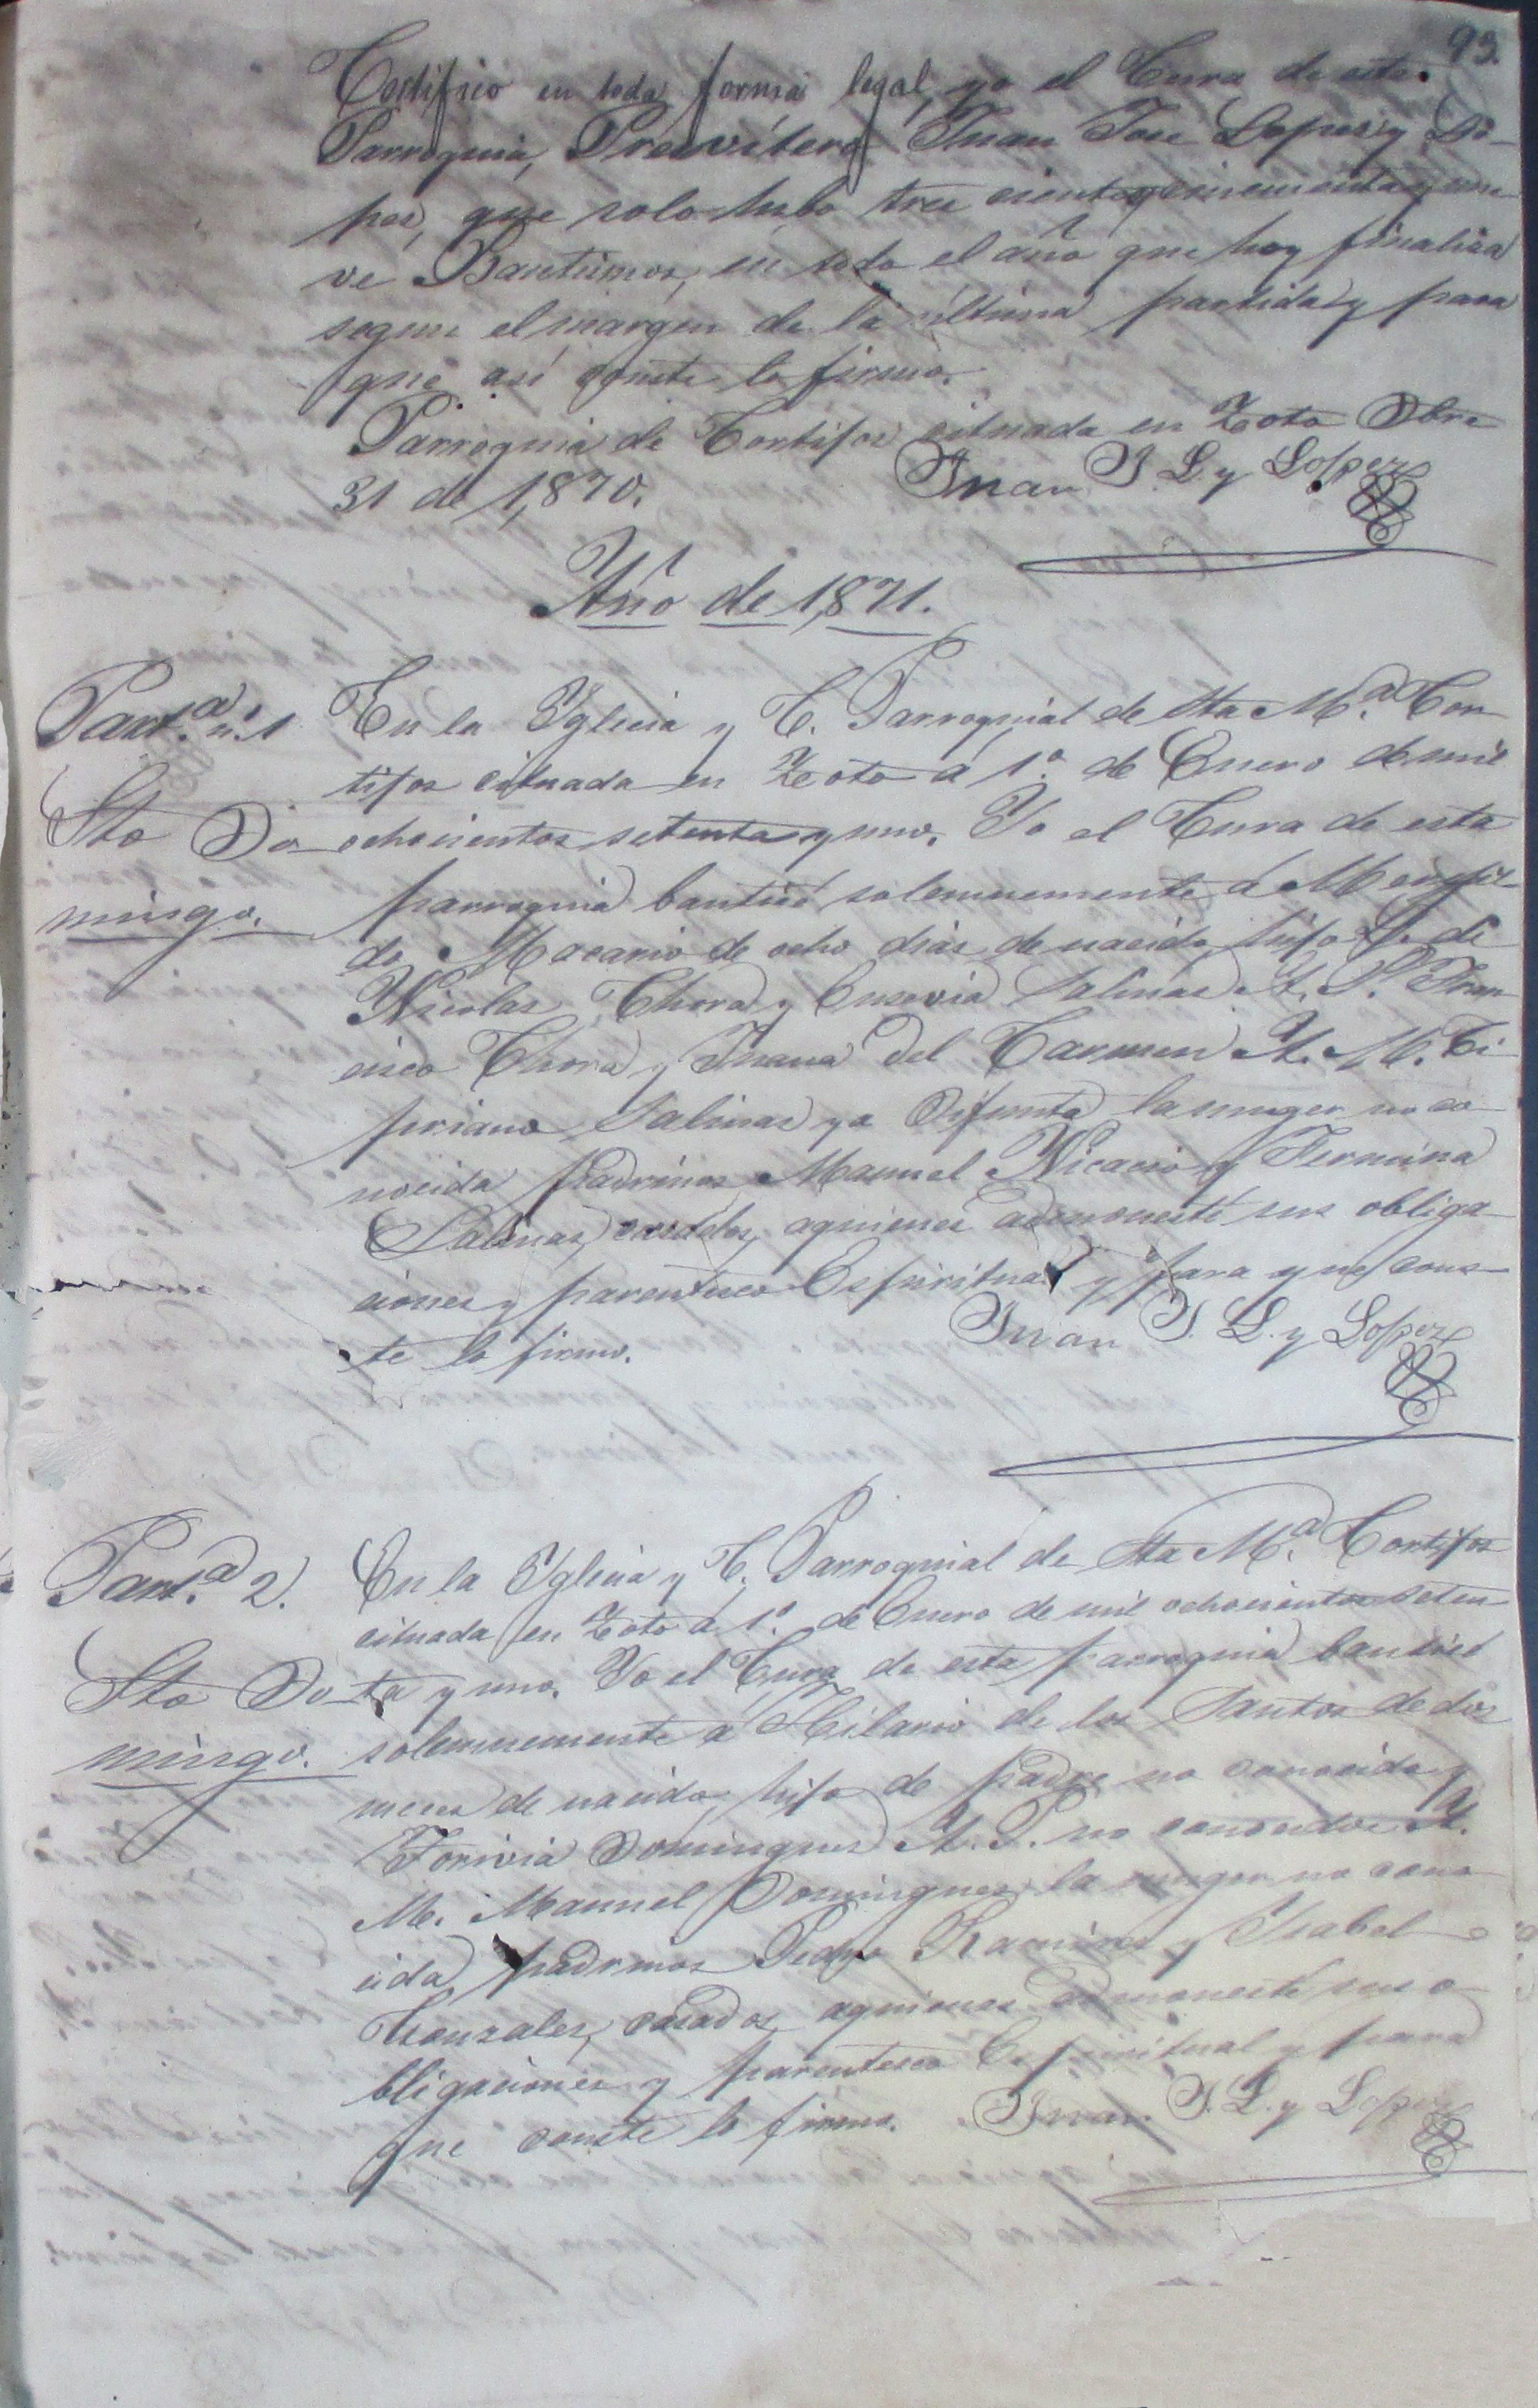 93.
Certifico en toda forma legal, yo el Cura de esta
Parroquia, Presvítero Juan Jose Lopes y Lo-
pes, que solo hubo tres cientos cincuenta y nue-
ve Bautismos, en todo el año que hoy finaliza
segun el margen de la última partida y para
que así conste lo firmo.
Parroquia de Cortijos situada en Zoto Dbre
31 de 1,870.
Juan J. L. y Lopez
Año de 1,871.
Part.a n. 1
Sto Do-
mingo.
En la Yglecia y C. Parroquial de Sta M.a Cor-
tijos cituada en Zoto á 1.o de Enero de mil
ochocientos setenta y uno. Yo el Cura de esta
parroquia bauticé solemnemente á
do Macario de ocho dias de nacido, hijo L. de
Nicolas Chora y Eusevia Salinas A. P. Fran-
cisco Chora y Juana del Carmen A. M. Ci-
priano Salinas ya difunto la muger no co-
nocida padrinos Manuel Nicacio y Fermina
Salinas, casados, aquienes admonesté sus obliga-
ciones y parentesco Espiritual y para que cons-
te lo firmo.
Juan J. L. y Lopez
Part.a 2.
Sto Do-
mingo.
En la Yglecia y C. Parroquial de Sta M.a Cortijos
cituada en Zoto á 1.o de Enero de mil ochocientos seten-
ta y uno. Yo el Cura de esta parroquia bauticé
solemnemente á Hilario de los Santos de dos
meses de nacido, hijo de padre no conocido y
Domingues A. P. no conocidos A.
M. Manuel Domingues la muger no cono-
cida, padrinos Pedro Ramires y Ysabel
Gonzales, casados, aquienes admonesté sus o-
bligaciones y parentesco Espiritual y para
que conste lo firmo. Juan J. L. y Lopez